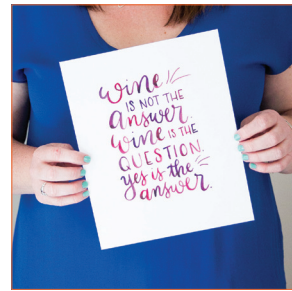 wine
IS NOT THE
answer.
wine IS THE
QUESTION.
yes is the
answer.